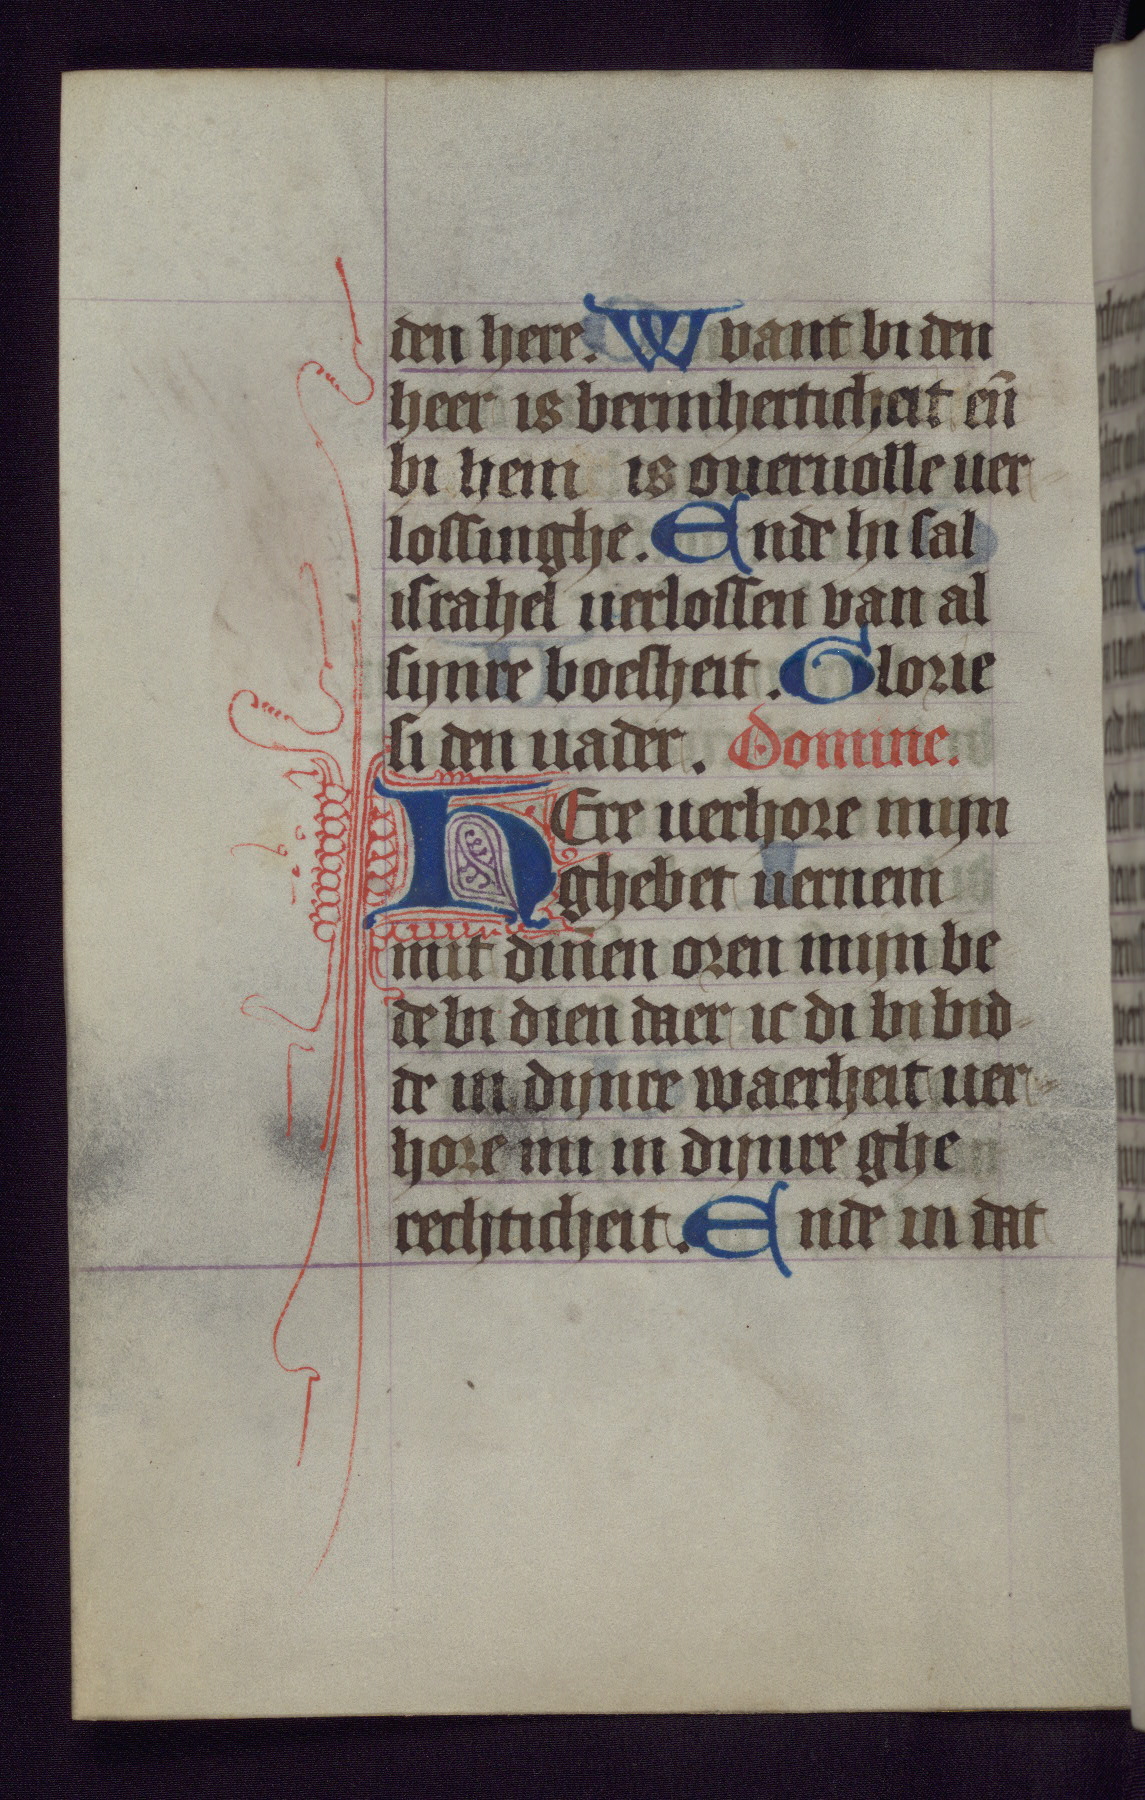 den here. Wvant bi den
heer is bermherticheit eñ
bi hem is ouervolle ver
lossinghe. Ende hi sal
israhel verlossen van al
sijnre boesheit. Glorie
si den vader. Domine.
HEre verhore mijn
ghebet vernem
mit dinen oren mijn be
de bi dien daer ic di bi bid
de in dijnre waerheit ver
hore mi in dijnre ghe
rechticheit. Ende in dat